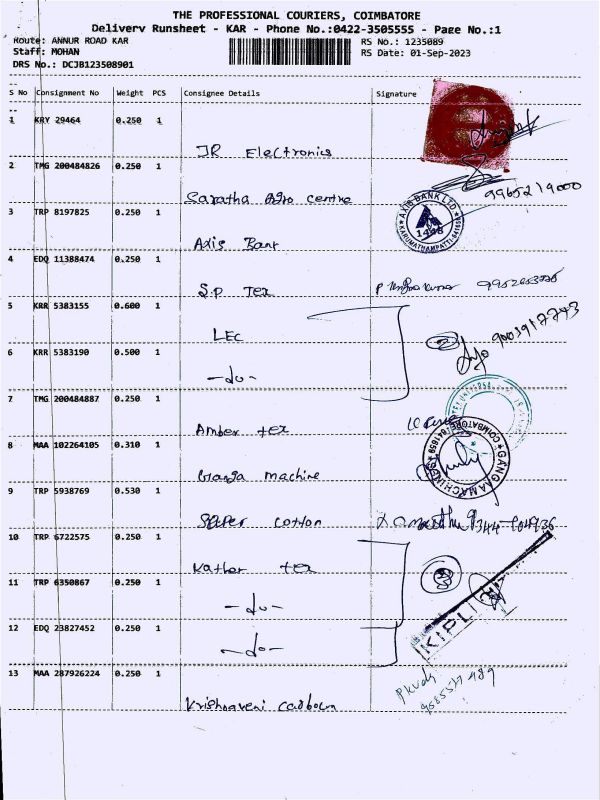 THE PROFESSIONAL COURIERS, COIMBATORE
Delivery Runsheet - KAR - Phone No.:0422-3505555 - Page No.:1
Route: ANNUR ROAD KAR
RS No.: 1235089
Staff: MOHAN
RS Date: 01-Sep-2023
DRS No.: DCJB123508901
S No Consignment No Weight PCS Consignee Details Signature
1 KRY 29464 0.250 1
JR Electronics
2 TMG 200484826 0.250 1
Saratha Agro centre
9965219000
3 TRP 8197825 0.250 1
AXIS BANK LTD
KARUMATHAMPATTI-641659
1498
Axis Bank
4 EDQ 11388474 0.250 1
S.P Tex
5 KRR 5383155 0.600 1
LEC
9003917743
6 KRR 5383190 0.500 1
-do-
7 TMG 200484887 0.250 1
Amber tex
8 MAA 102264105 0.310 1
GANGAA MACHINE
COIMBATORE 641659
Ganga machine
9 TRP 5938769 0.530 1
Super cotton
10 TRP 6722575 0.250 1
Kather tex
11 TRP 6350867 0.250 1
-do-
12 EDQ 23827452 0.250 1
-do-
13 MAA 287926224 0.250 1
Krishnaveni carbon